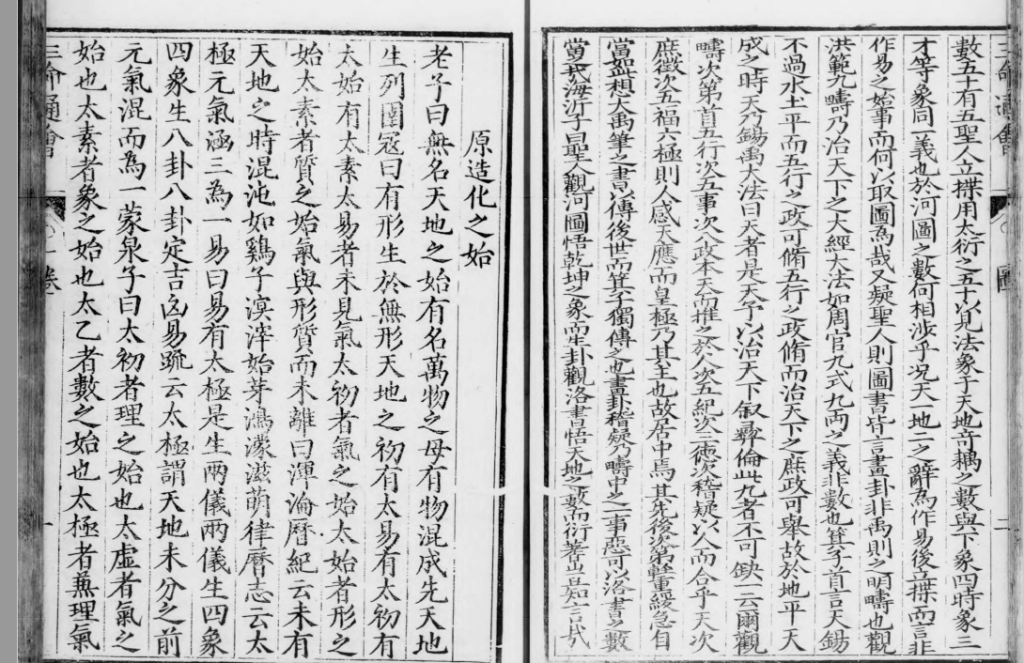 三命通會 圖 二
數五十有五聖人立揲用大衍之五十以見法象于天地竒耦之數與下象四時象三
才等象同一義也於河圖之數何相涉乎况天一地二之辭為作易後立揲而言非
作易之始事而何以取圖為哉又疑聖人則圖書皆言畫卦非禹則之明疇也觀
洪範九疇乃治天下之大經大法如周官九式九兩之義非數也箕子首言天錫
不過水土平而五行之政可脩五行之政脩而治天下之庶政可舉故於地平天
成之時天乃錫禹大法曰天者是天予以治天下叙彛倫此九者不可缺一云爾觀
疇次第首五行次五事次八政本天而推之於人次五紀次三徳次稽疑以人而合乎天次
庶徵次五福六極則人感天應而皇極乃其主也故居中焉其先後次第輕重緩急自
當如想大禹筆之書以傳後世而箕子獨傳之也畫卦稽疑乃疇中之一事惡可以洛書之數
當哉海沂子曰聖人觀河圖悟乾坤之象而生卦觀洛書悟天地之數而衍蓍豈知言哉
原造化之始
老子曰無名天地之始有名萬物之母有物混成先天地
生列圄冦曰有形生於無形天地之初有太易有太初有
太始有太素太易者未見氣太初者氣之始太始者形之
始太素者質之始氣與形質而未離曰渾淪曆紀云未有
天地之時混沌如鷄子溟涬始芽鴻濛滋萌律曆志云太
極元氣涵三為一易曰易有太極是生兩儀兩儀生四象
四象生八卦八卦定吉凶易疏云太極謂天地未分之前
元氣混而為一蒙泉子曰太初者理之始也太虛者氣之
始也太素者象之始也太乙者數之始也太極者蕪理氣
三命通會 卷一 一